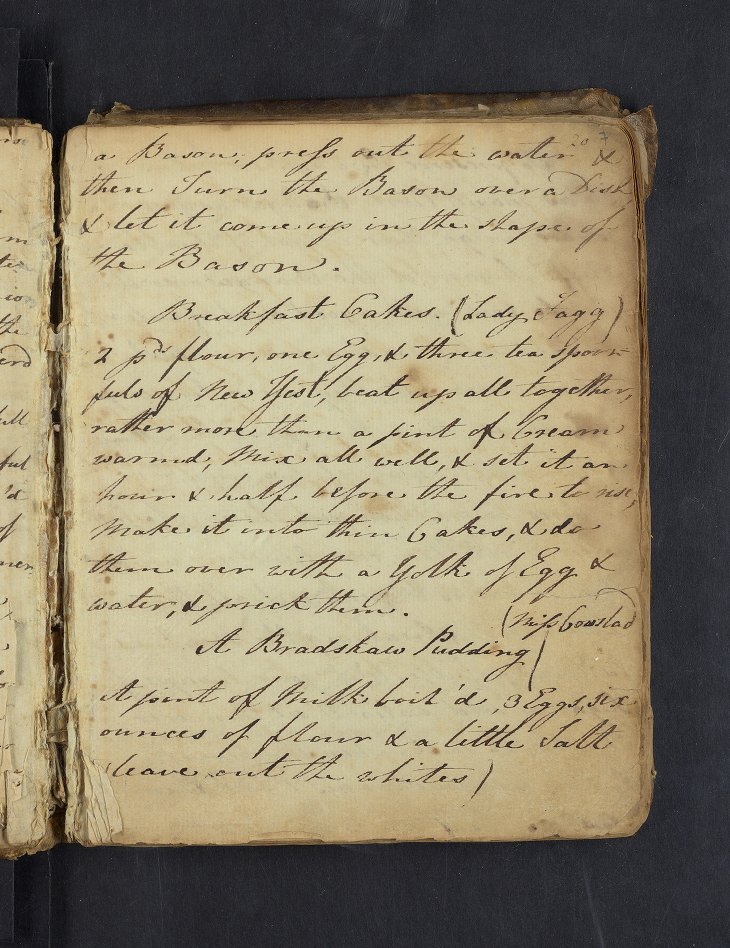 20 7
a Bason, press out the water &
then Turn the Bason over a Dish
& let it come up in the shape of
the Bason.
Breakfast Cakes. (Lady Fagg)
2 pds flour, one Egg, & three tea spoon
fuls of New Yest, beat up all together,
rather more than a pint of Cream
warmd, Mix all well, & set it an
hour & half before the fire to rise,
Make it into thin Cakes, & do
them over with a Yolk of Egg &
water, & prick them.
(Miss Cowslad
A Bradshaw Pudding)
A pint of Milk boil'd, 3 Eggs, six
ounces of flour & a little Salt
(leave out the whites)